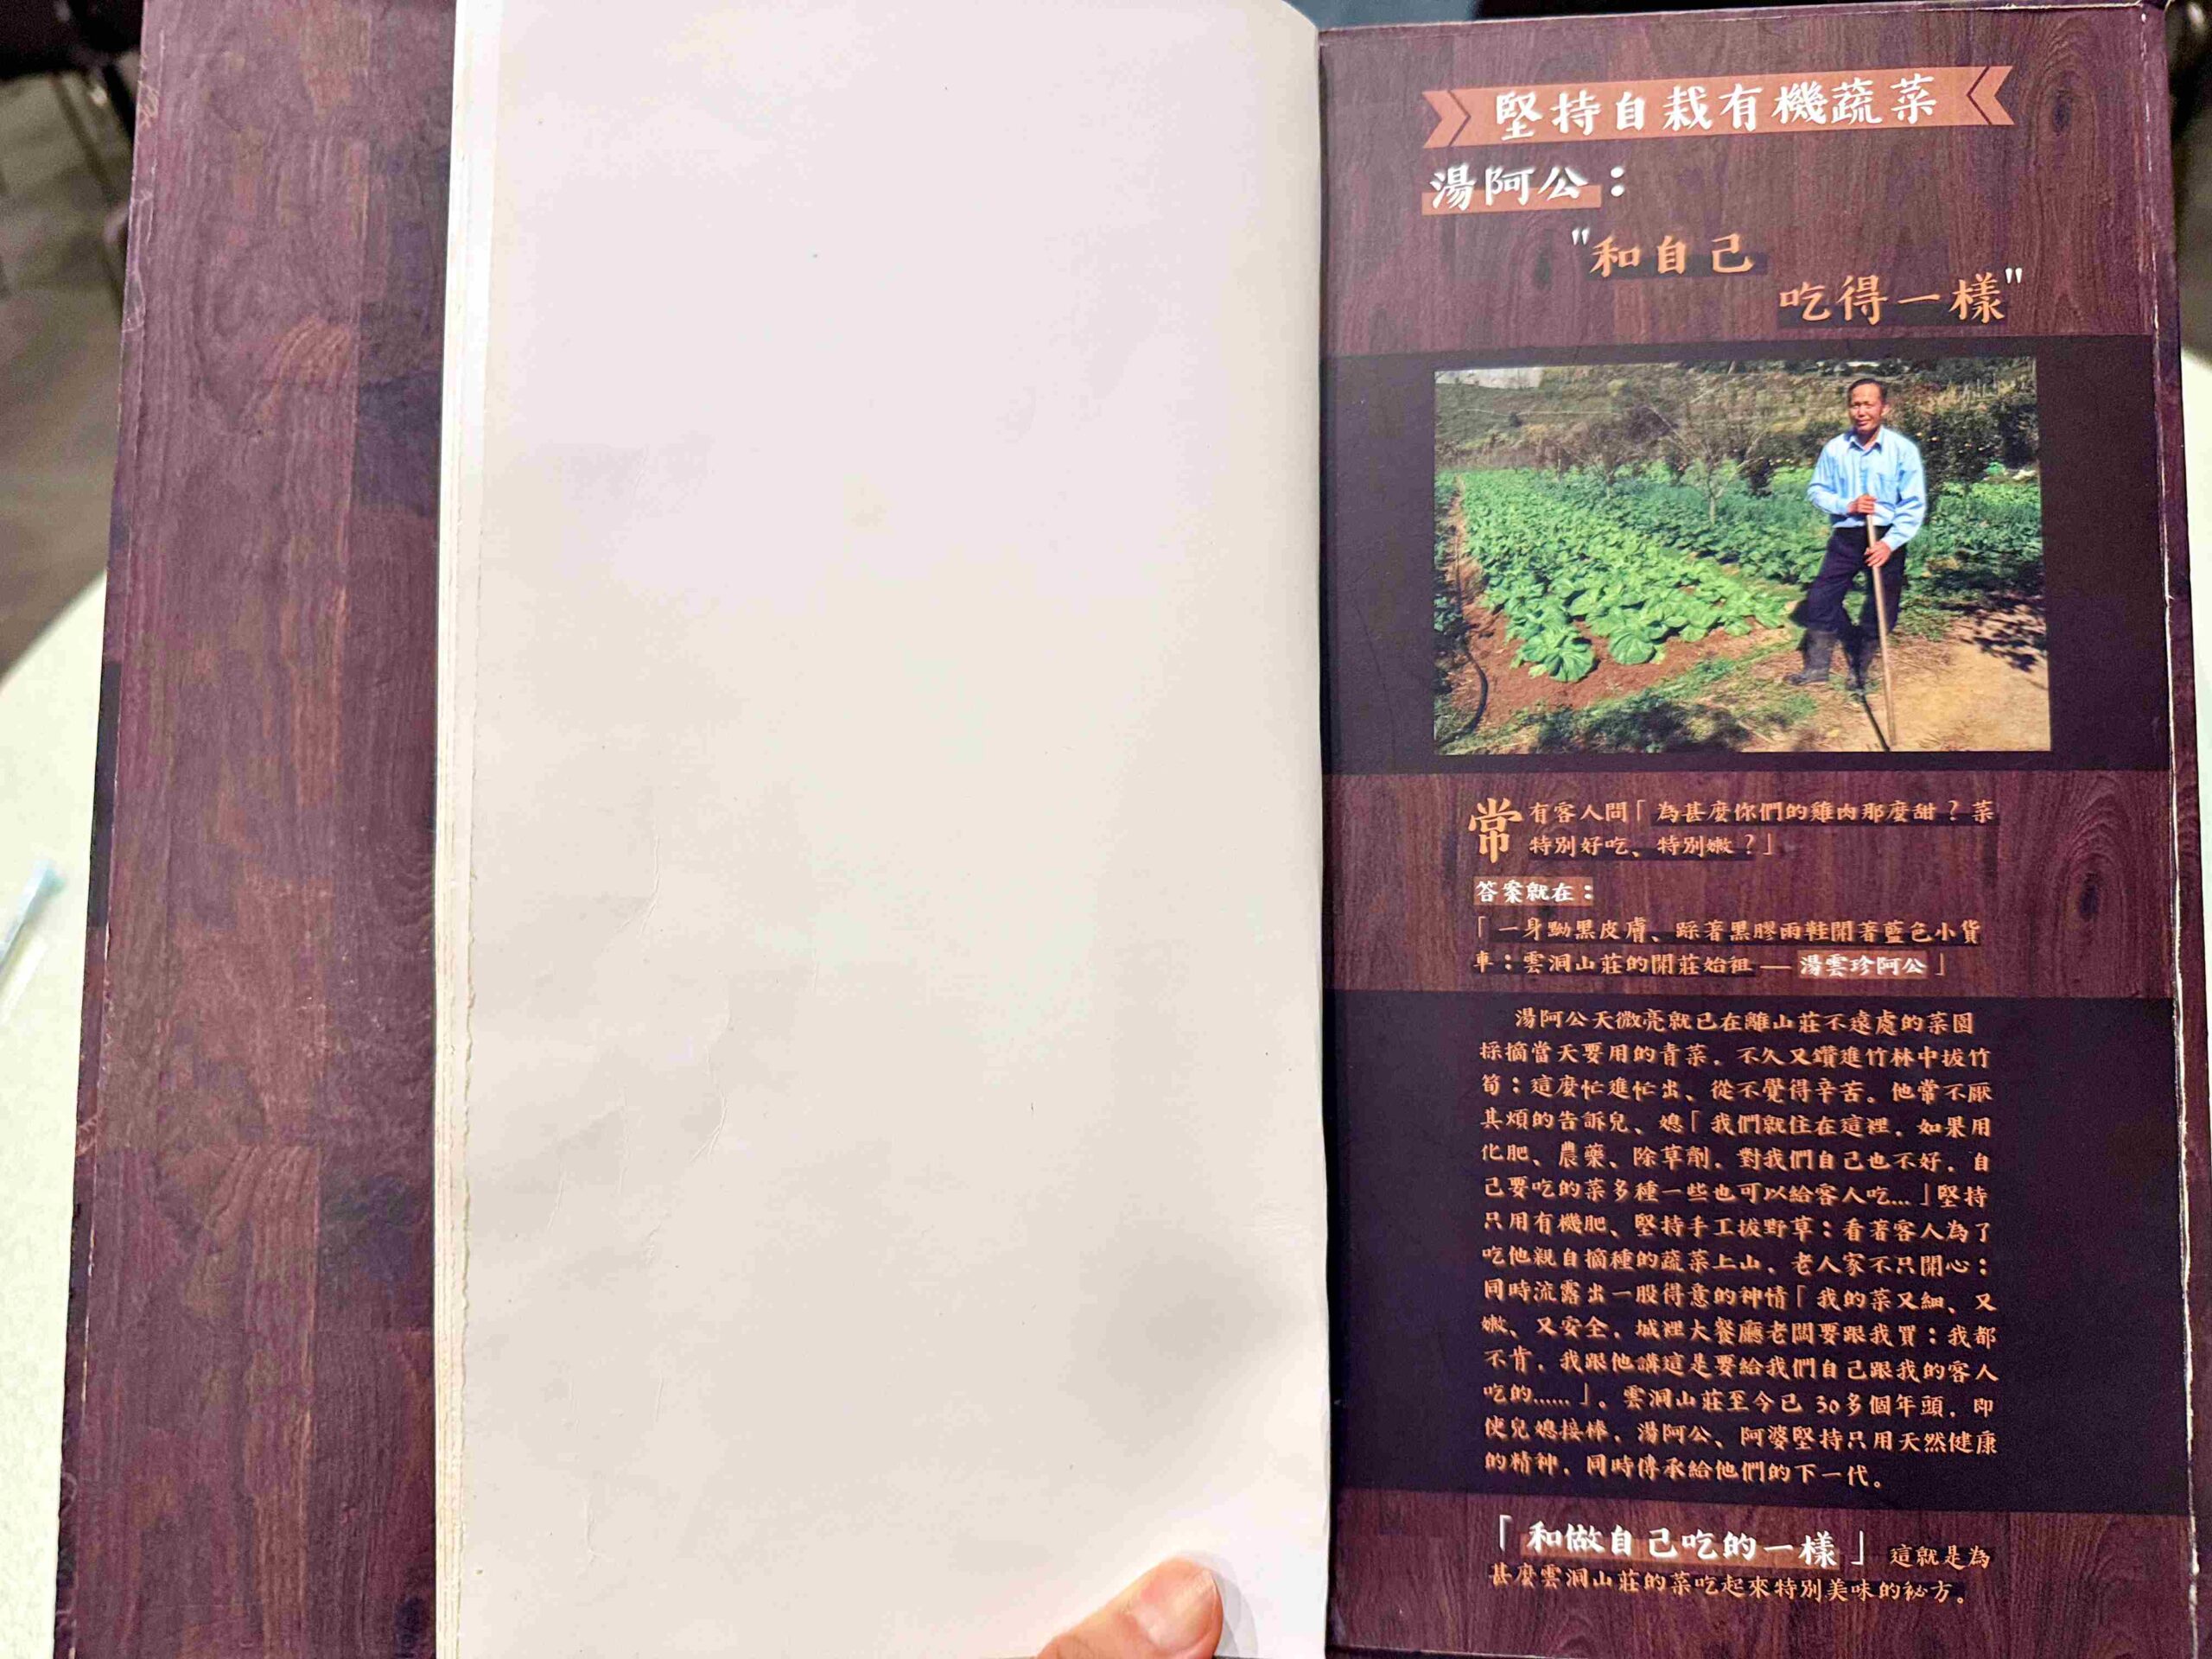 堅持自栽有機蔬菜
湯阿公：
"和自己
吃得一樣"
常有客人問「為甚麼你們的雞肉那麼甜？菜
特別好吃、特別嫩？」
答案就在：
「一身黝黑皮膚、踩著黑膠雨鞋開著藍色小貨
車：雲洞山莊的開莊始祖—湯雲珍阿公」
湯阿公天微亮就已在離山莊不遠處的菜園
採摘當天要用的青菜，不久又鑽進竹林中拔竹
筍：這麼忙進忙出、從不覺得辛苦。他常不厭
其煩的告訴兒、媳「我們就住在這裡，如果用
化肥、農藥、除草劑，對我們自己也不好，自
己要吃的菜多種一些也可以給客人吃...」堅持
只用有機肥、堅持手工拔野草：看著客人為了
吃他親自摘種的蔬菜上山，老人家不只開心：
同時流露出一股得意的神情「我的菜又細、又
嫩、又安全，城裡大餐廳老闆要跟我買：我都
不肯，我跟他講這是要給我們自己跟我的客人
吃的......」。雲洞山莊至今已 30多個年頭，即
使兒媳接棒，湯阿公、阿婆堅持只用天然健康
的精神，同時傳承給他們的下一代。
「和做自己吃的一樣」這就是為
甚麼雲洞山莊的菜吃起來特別美味的祕方。